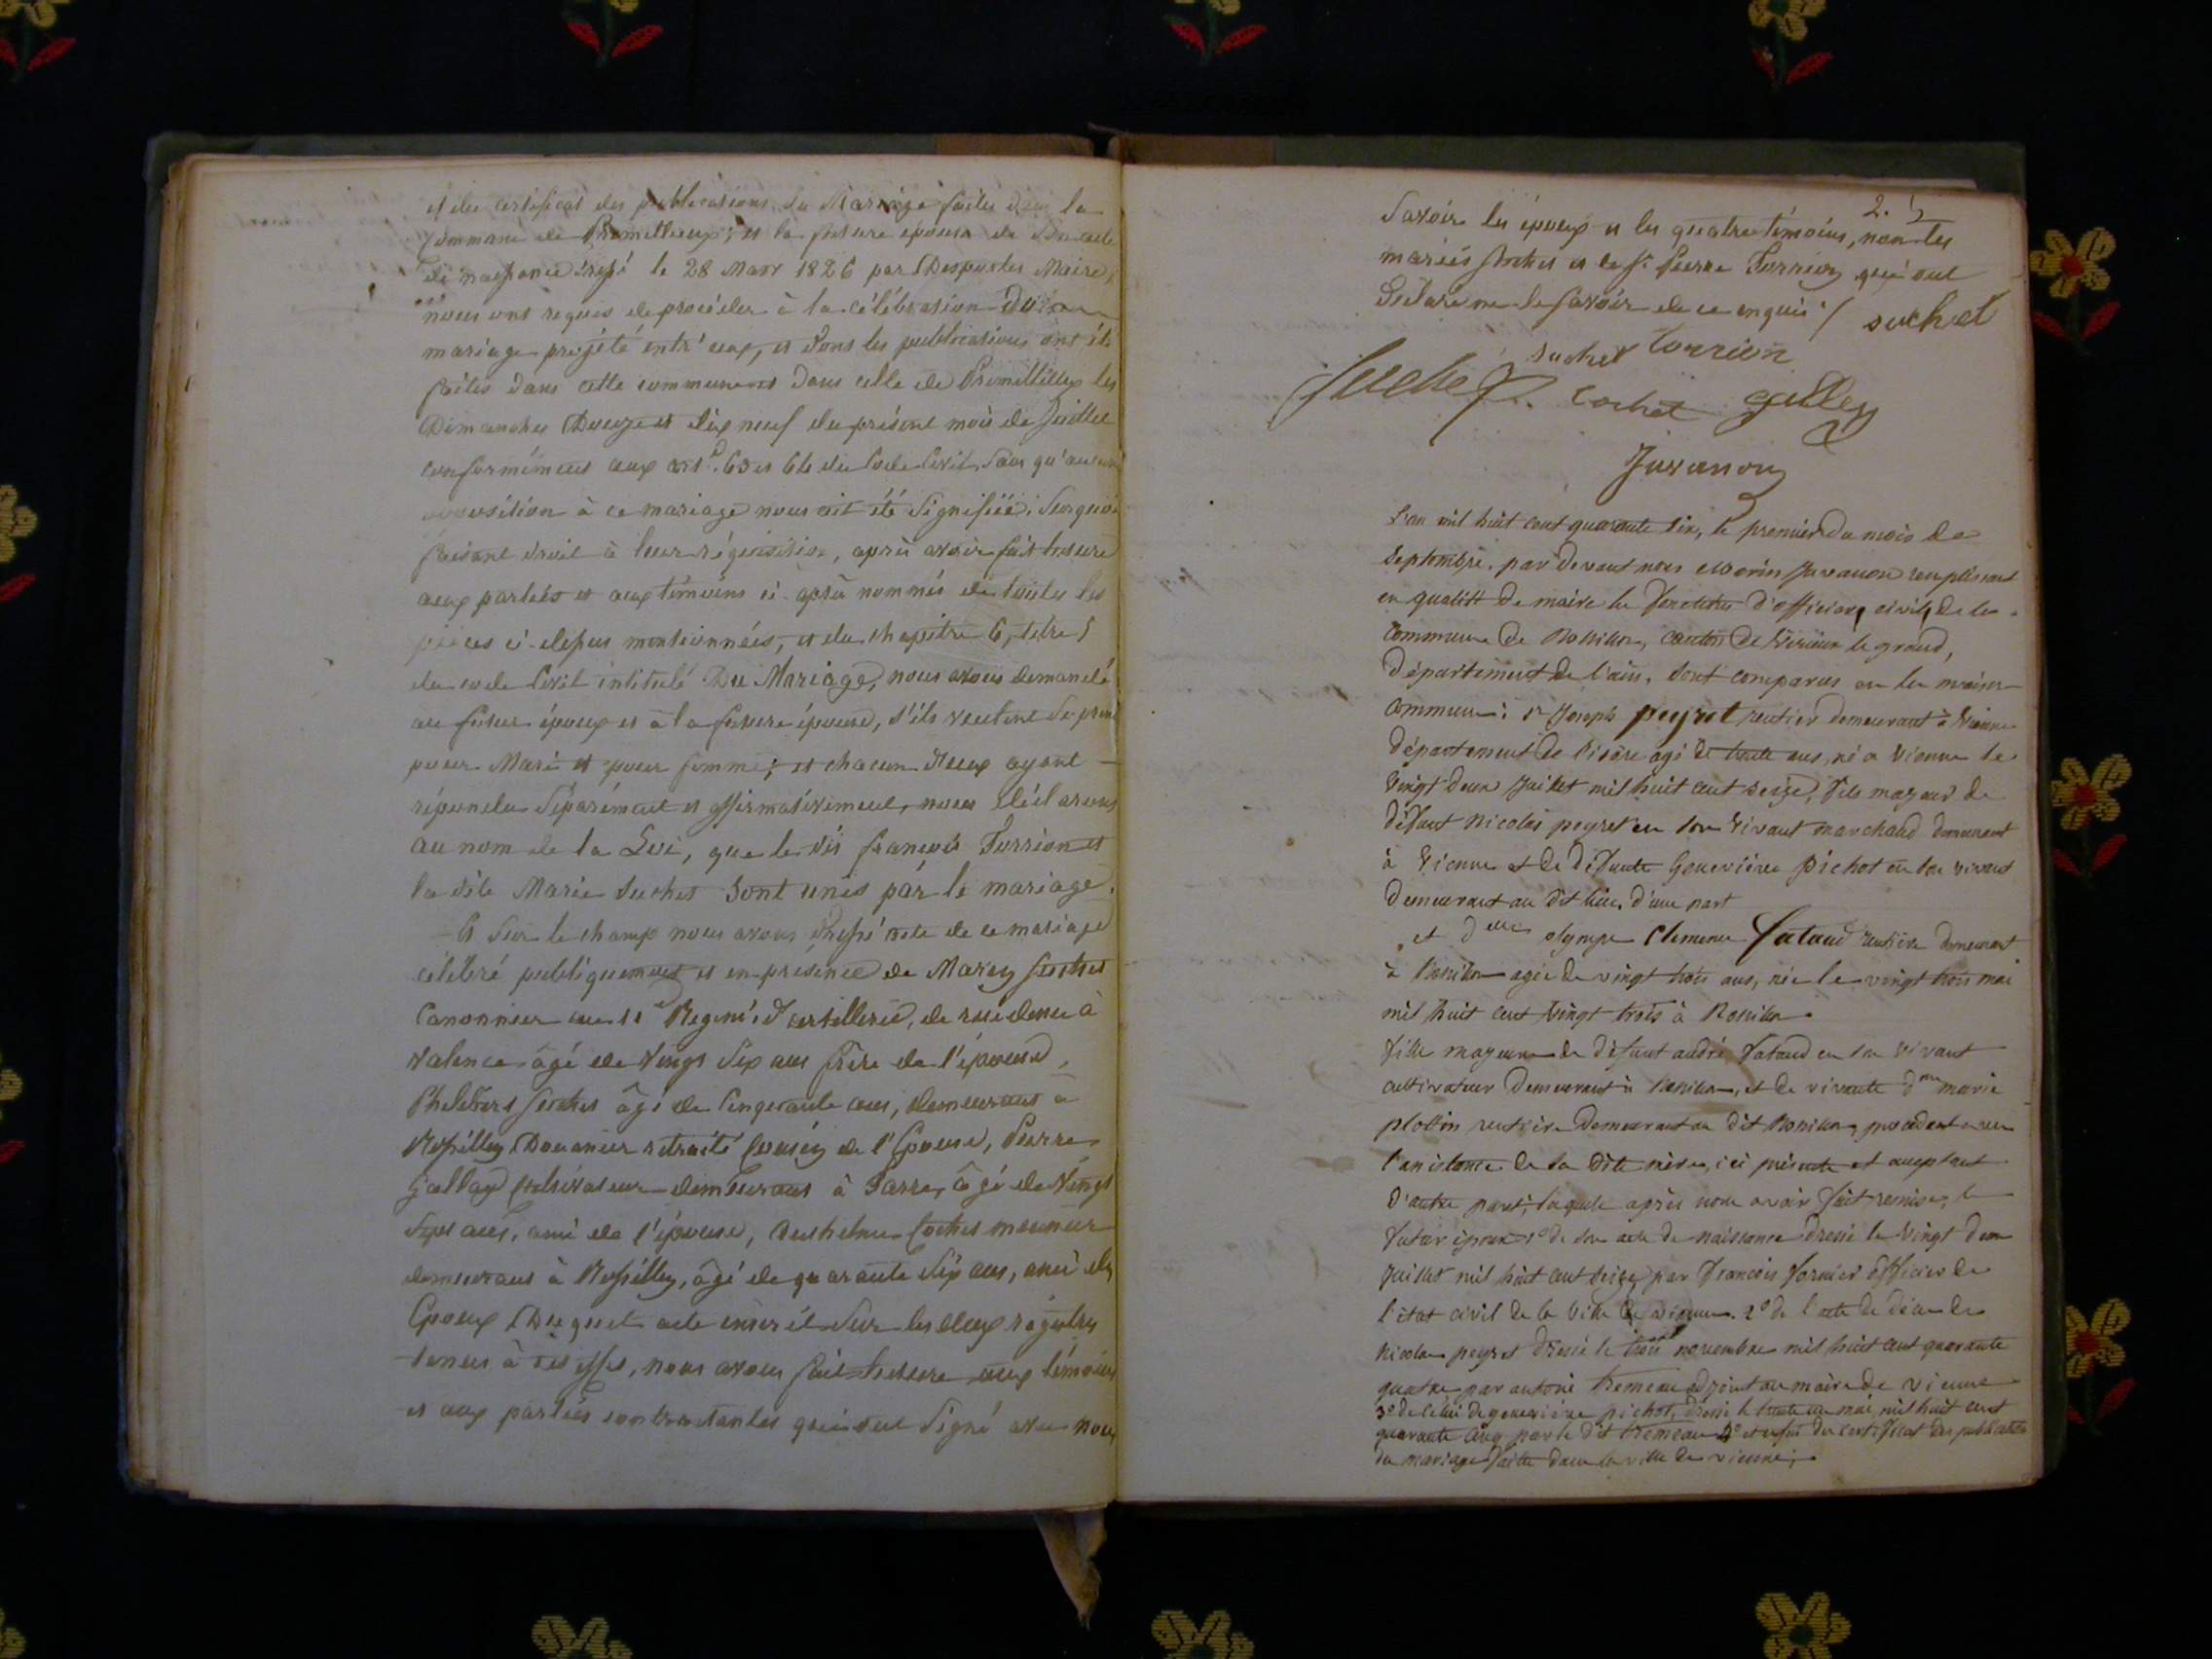 et du certificat des publications du Mariage faites dans la
Commune de Premillieux; et la future épouse de son acte
de naissance dressé le 28 Mars 1826 par Desportes Maire,
nous ont requis de procéder à la célébration du
mariage projété entr'eux, et dont les publications ont été
faites dans cette commune et dans celle de Prémillieux les
Dimanches Douze et dix neuf du présent mois de Juillet
conformément aux art. 63 et 64 du Code Civil, sans qu'aucune
opposition à ce mariage nous ait été signifiée. Sur quoi
faisant droit à leur réquisition, après avoir fait lecture
aux parties et aux témoins ci-après nommés de toutes les
pièces ci-dessus mentionnées, et du chapitre 6, titre 5
du code Civil intitulé Du Mariage, nous avons demandé
au futur époux et à la future épouse, s'ils veulent se prend
pour Mari et pour femme; et chacun d'eux ayant
répondu séparément et affirmativement, nous déclarons
au nom de la Loi, que le dit françois Torrion et
la dite Marie Suchet sont unis par le mariage.
Et sur le champ nous avons dressé acte de ce mariage
célébré publiquement et en présence de Suchet
Canonnier au 11e Regimt d'artillerie, de residence à
Valence âgé de vingt six ans frère de l'épouse,
Philibert Suchet âgé de Cinquante ans, demeurant à
Rossillon Douanier retraité Cousin de l'Epouse, Pierre
Gallay cultivateur demeurant à âgé de vingt
sept ans, ami de l'épouse, Anthelme Cochet meunier
demeurant à Rossillon, âgé de quarante six ans, ami des
Epoux Duquel acte inscrit sur les deux régistres
tenus à cet effet, nous avons fait lecture aux témoins
et aux parties contractantes qui ont signé avec nous
2. 5
Savoir les époux et les quatre témoins, non les
mariés Suchet et le Sr Pierre Torrion qui ont
Déclaré ne le savoir de ce enquis ./ suchet
suchet torrion
Suchet. Cochet galley
Juvanon
L'an mil huit cent quarante six, le premier du mois de
Septembre, par devant nous Juvanon remplissant
en qualité de maire les fonctions d'officier civil de la
Commune de Rossillon, canton de Virieux le grand,
Département de l'ain, sont comparus en la maison
Commune: Sr Joseph peyret rentier demeurant à Vienne
département de l'isère agé de trente ans, né à Vienne le
vingt deux Juillet mil huit cent seize, fils majeur de
défunt Nicolas peyret en son vivant marchand demeurant
à Vienne et de Défunte Genevieve pichot en son vivant
demeurant au dit lieu. d'une part
et delle olympe Clémence fataud rentière demeurant
à Rossillon agée de vingt trois ans, née le vingt trois mai
mil huit cent vingt trois à Rossillon
fille majeure de défunt andré fataud en son vivant
cultivateur Demeurant à Rossillon, et de vivante dme marie
plottin rentière Demeurant au dit Rossillon, procédant avec
l'assistance de sa dite mère, ici présente et acceptant
d'autre part; laquelle après nous avoir fait remise, le
futur époux 1o de son acte de naissance dressé le vingt deux
Juillet mil huit cent seize par françois fornier officier de
l'état civil de la ville de vienne. 2o de l'acte de décès de
Nicolas peyret dressé le trois novembre mil huit cent quarante
quatre par antoine Tremeau adjoint au maire de Vienne
3o de Celui de genevieve pichot, dressé le trente un mai mil huit cent
quarante cinq par le dit tremeau 4o et enfin du certificat des publications
du mariage faites dans la ville de vienne;